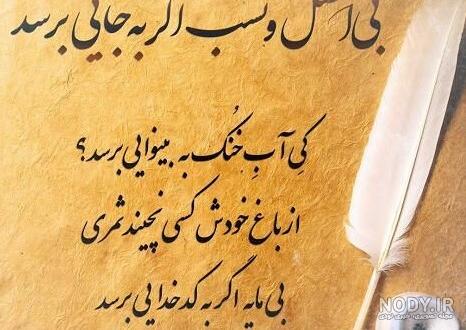 بی اصل و نسب اگر به جایی برسد
کِی آبِ خُنک به بینوایی برسد؟
از باغ خودش کسی نچیند ثمری
بی مایه اگر به کدخدایی برسد
NODY.IR